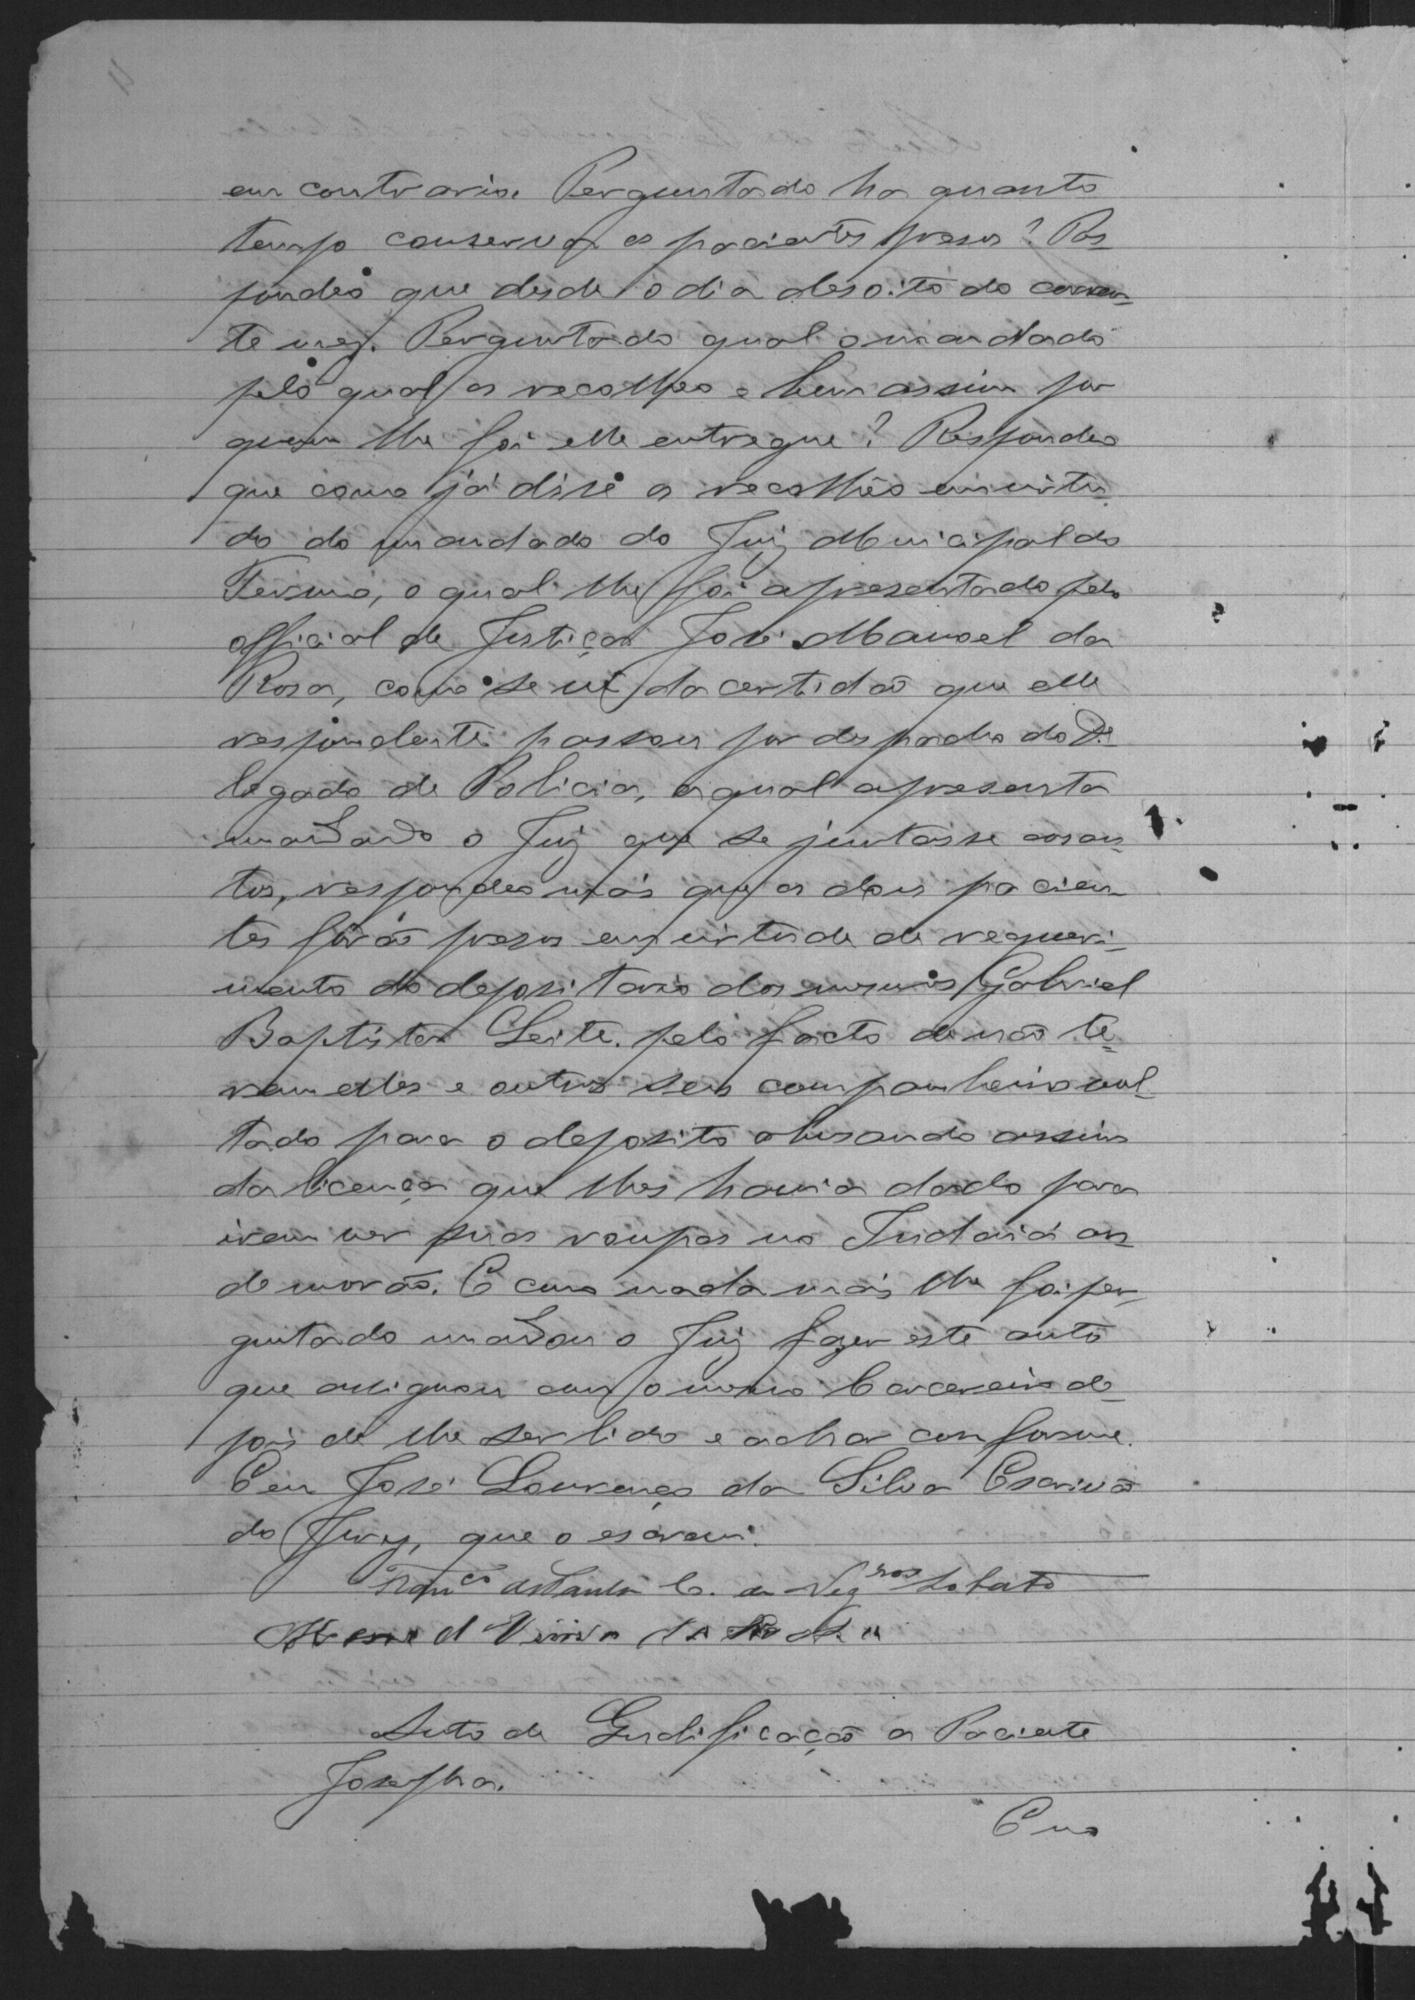 em contrario. Perguntado ha quanto
tempo conserva os pacientes presos? Res-
pondeo que desde o dia desoito do corren-
te mez. Perguntado qual o mandado
pelo qual os recolheo e bem assim por
quem lhe foi elle entregue? Respondeo
que como já disse os recolheo em virtu-
de do mandado do Juiz Municipal do
Termo, o qual lhe foi apresentado pelo
official de Justiça José Manoel da
Rosa, como se vê da certidão que elle
respondente passou por despacho do De-
legado de Policia, a qual apresenta
mandado o Juiz que se juntasse aos au-
tos, respondeo mais que os dous pacien-
tes forão presos em virtude de requeri-
mento do depositario dos mesmos Gabriel
Baptista Leite. pelo facto de não te-
rem elles e outros seus companheiro vol-
tado para o deposito abusando assim
da licença que lhes havia dado para
irem ver suas roupas no Indaiá on-
de morão. E como nada mais lhe foi per-
guntado mandou o Juiz fazer este auto
que assignou com o mesmo Carcereiro de-
pois de lhe ser lido e achar conforme.
Eu José Lourenço da Silva Escrivão
do Jury, que o escrevi.
Franco de Paula C. de Negros Lobato
Manoel Vieira da
Auto de Qualificação a Paciente
Josepha.
E no